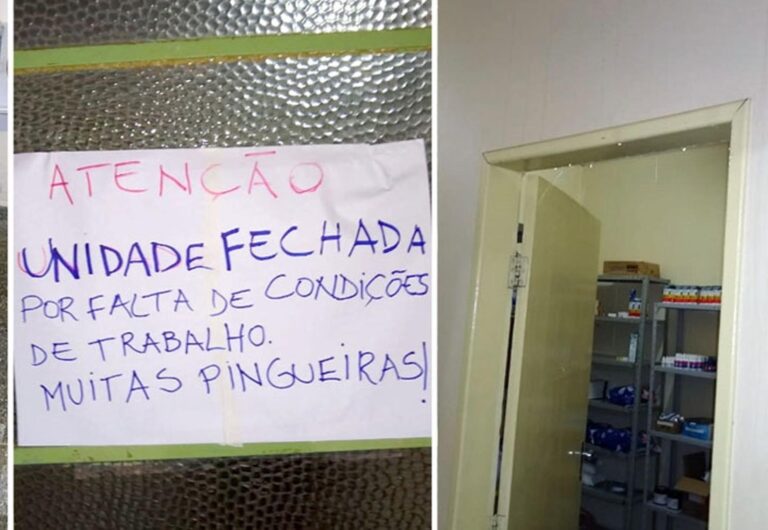 ATENÇÃO
UNIDADE FECHADA
POR FALTA DE CONDIÇÕES
DE TRABALHO.
MUITAS PINGUEIRAS!